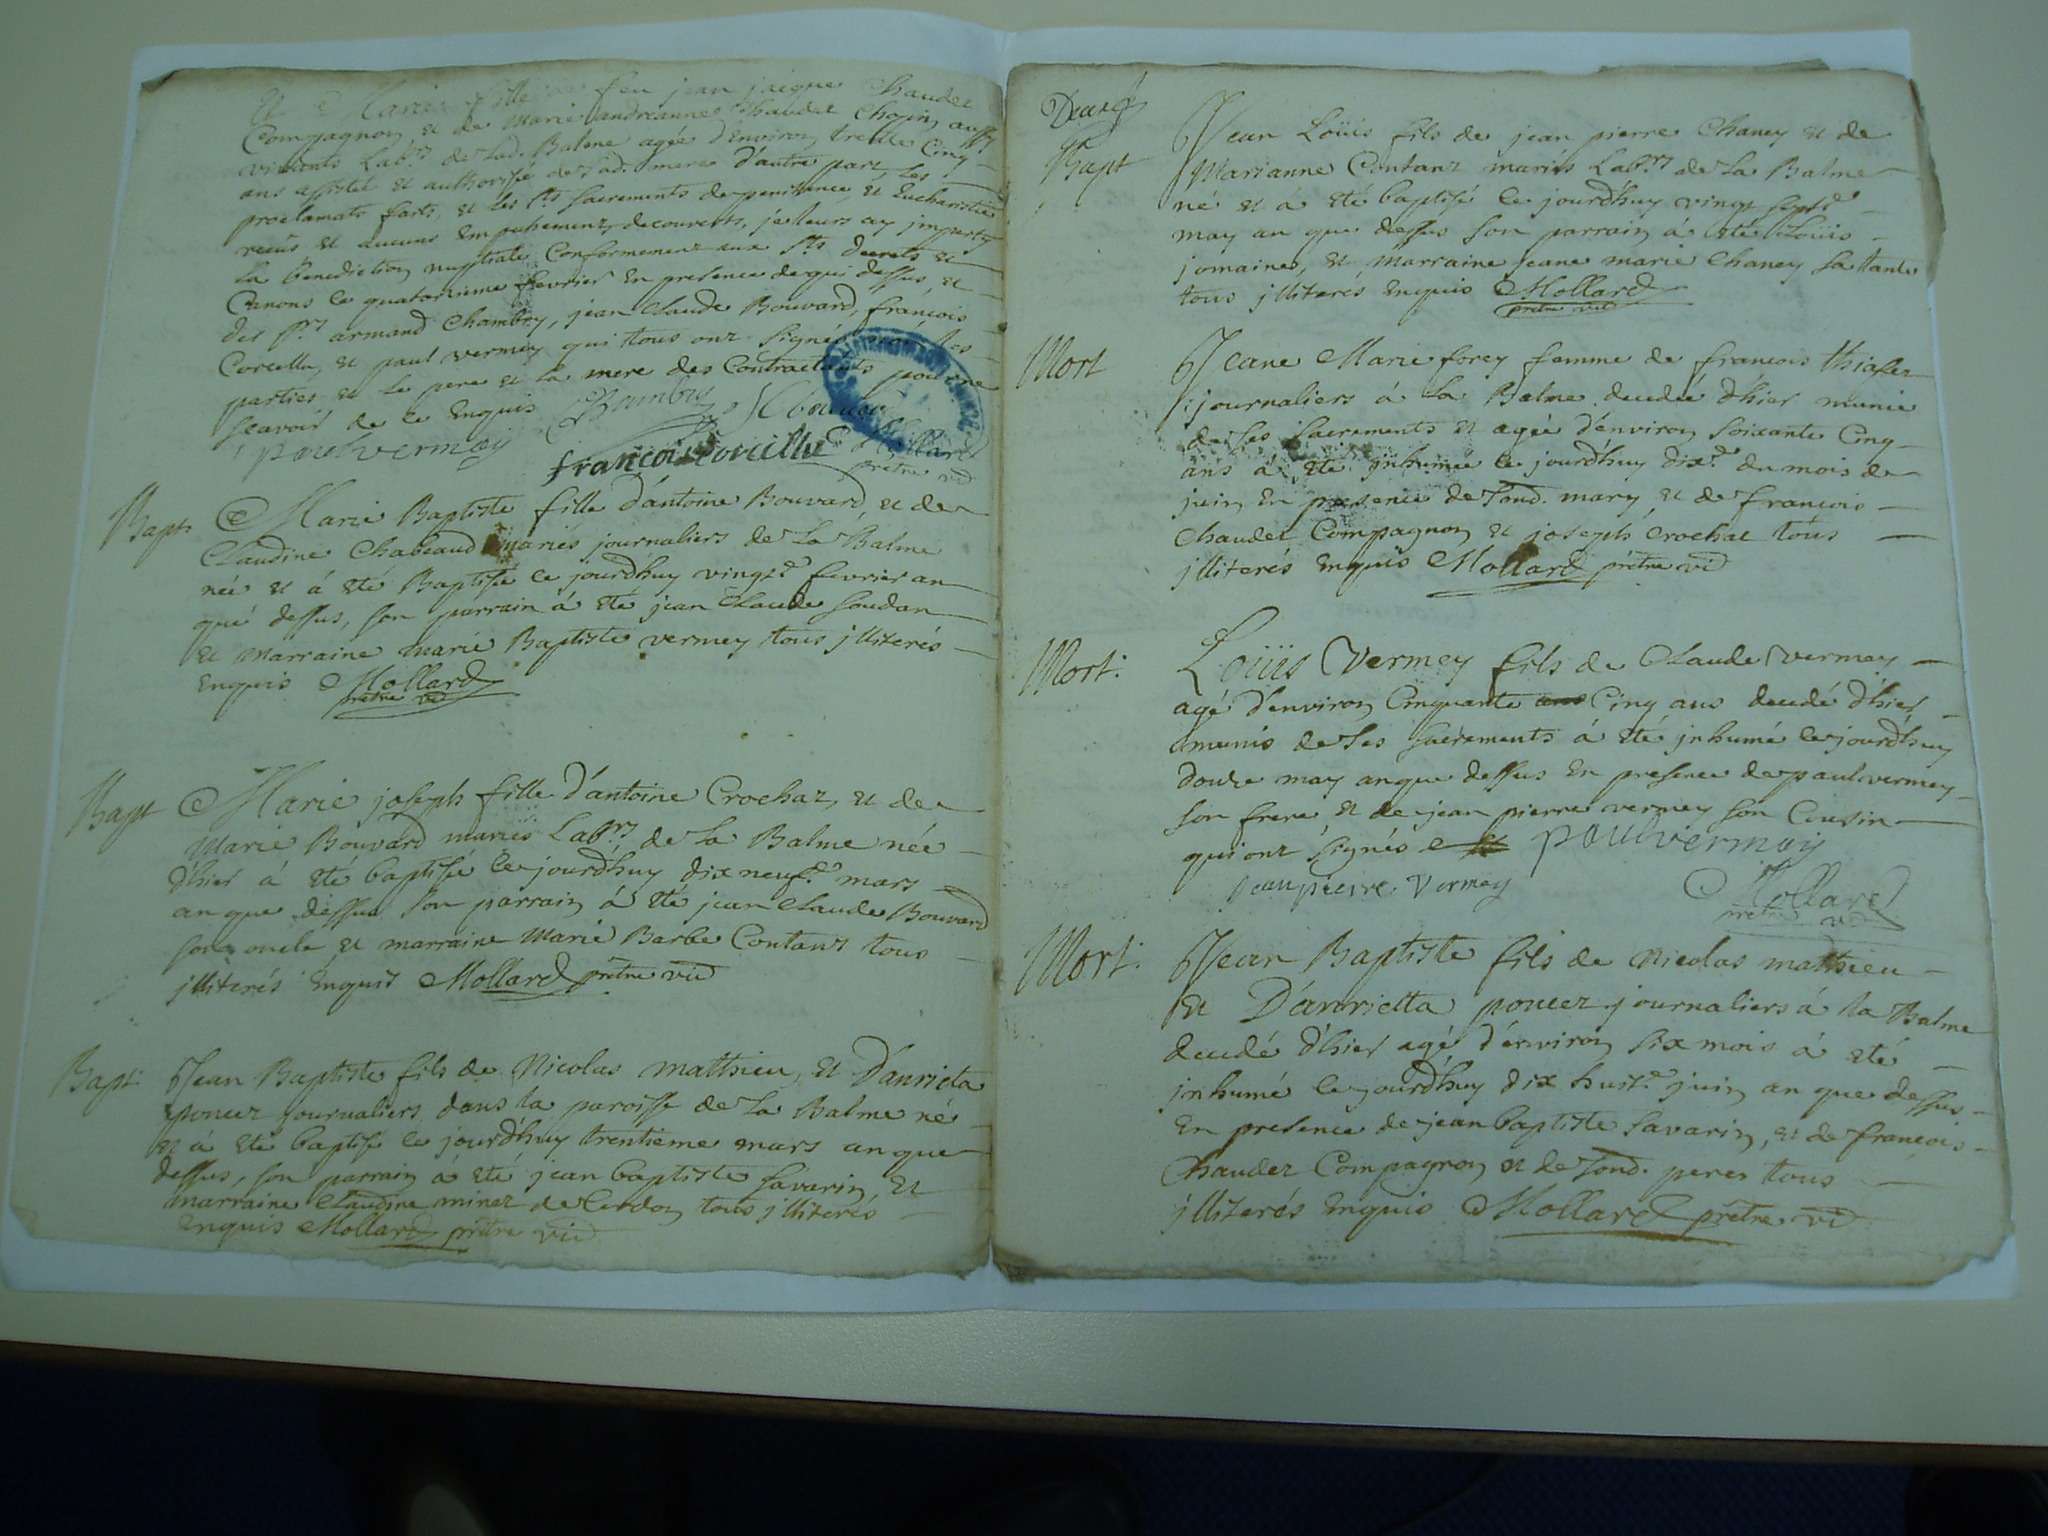 Et Marie fille feu jean jaique Chaudet
Compagnon, et de Marie andreanne Chaudet Chopin aussy
vivants Lab.rs de Lad. Balme agée d'environ trente Cinq
ans assisté et authorisé de sad. mere d'autre part, Les
proclamats faits, et les Sts sacrements de penitence, et Eucharistie
reçus et aucuns Empechements decouverts, je leurs ay imparty
La Benediction nuptiale Conformement aux Sts decrets et
Canons le quatorzieme fevrier En presence de qui dessus, et
des Srs armand Chambry, jean Claude Bouvard, françois
Corcelle, et paul vermey qui tous ont signés non les
parties et le pere et la mere des Contractants pour ne
sçavoir de ce Enquis
paul vermey
françois Corcelle Mollard
prêtre vic
Bapt. Marie Baptiste fille d'antoine Bouvard et de
Claudine Chabeaud mariés journaliers de La Balme
née et á été Baptisé le jourd'huy vingt.e fevrier an
que dessus, son parrain á été jean Claude Soudan
et marraine marie Baptiste vermey tous illiterés
Enquis Mollard
prêtre vic
Bapt Marie joseph fille d'antoine Crochat, et de
Marie Bouvard mariés Lab.rs de La Balme née
d'hier á été baptisé le jourd'huy dix neuf.e mars
an que dessus son parrain á été jean Claude Bouvard
son oncle et marraine Marie Barbe Contant tous
illiterés Enquis Mollard prêtre vic
Bapt. Jean Baptiste fils de Nicolas matthieu, et D'anrieta
poncet journaliers dans la paroisse de La Balme né
et á été baptisé le jourd'huy trentieme mars an que
dessus, son parrain á été jean baptiste Savarin, et
marraine Claudine minet de Cerdon tous illiterés
Enquis Mollard prêtre vic
Bapt Jean Loüis fils de jean pierre Chaney et de
Marianne Contant mariés Lab.rs de La Balme
né et á été baptisé le jourd'huy vingt sept.e
may an que dessus son parrain á été Loüis
jomaine, et marraine jeane marie Chaney sa tante
tous illiterés Enquis Mollard
prêtre vic
Mort Jeane Marie forey femme de françois thiasset
journaliers á La Balme decedée d'hier munie
de ses sacrements et agée d'environ soixante Cinq
ans á été inhumée le jourd'huy dix.e du mois de
juin En presence de sond. mary, et de françois
Chaudet Compagnon et joseph Crochat tous
illiterés Enquis Mollard prêtre vic
Mort: Loüis Vermey fils de Claude Vermey
agé d'environ Cinquante ans Cinq ans decedé d'hier
munis de ses sacrements á été inhumé le jourd'huy
douze may an que dessus En presence de paul vermey
son frere, et de jean pierre vermey son Cousin
qui ont signés et paul vermey
jean pierre Vermey Mollard
prêtre vic
Mort: Jean Baptiste fils de Nicolas matthieu
et D'anrietta poncet journaliers á la Balme
decedé d'hier agé d'environ six mois á été
inhumé le jourd'huy dix huit.e juin an que dessus
En presence de jean baptiste Savarin, et de françois
Chaudet Compagnon et de sond. pere tous
illiterés Enquis Mollard prêtre vic